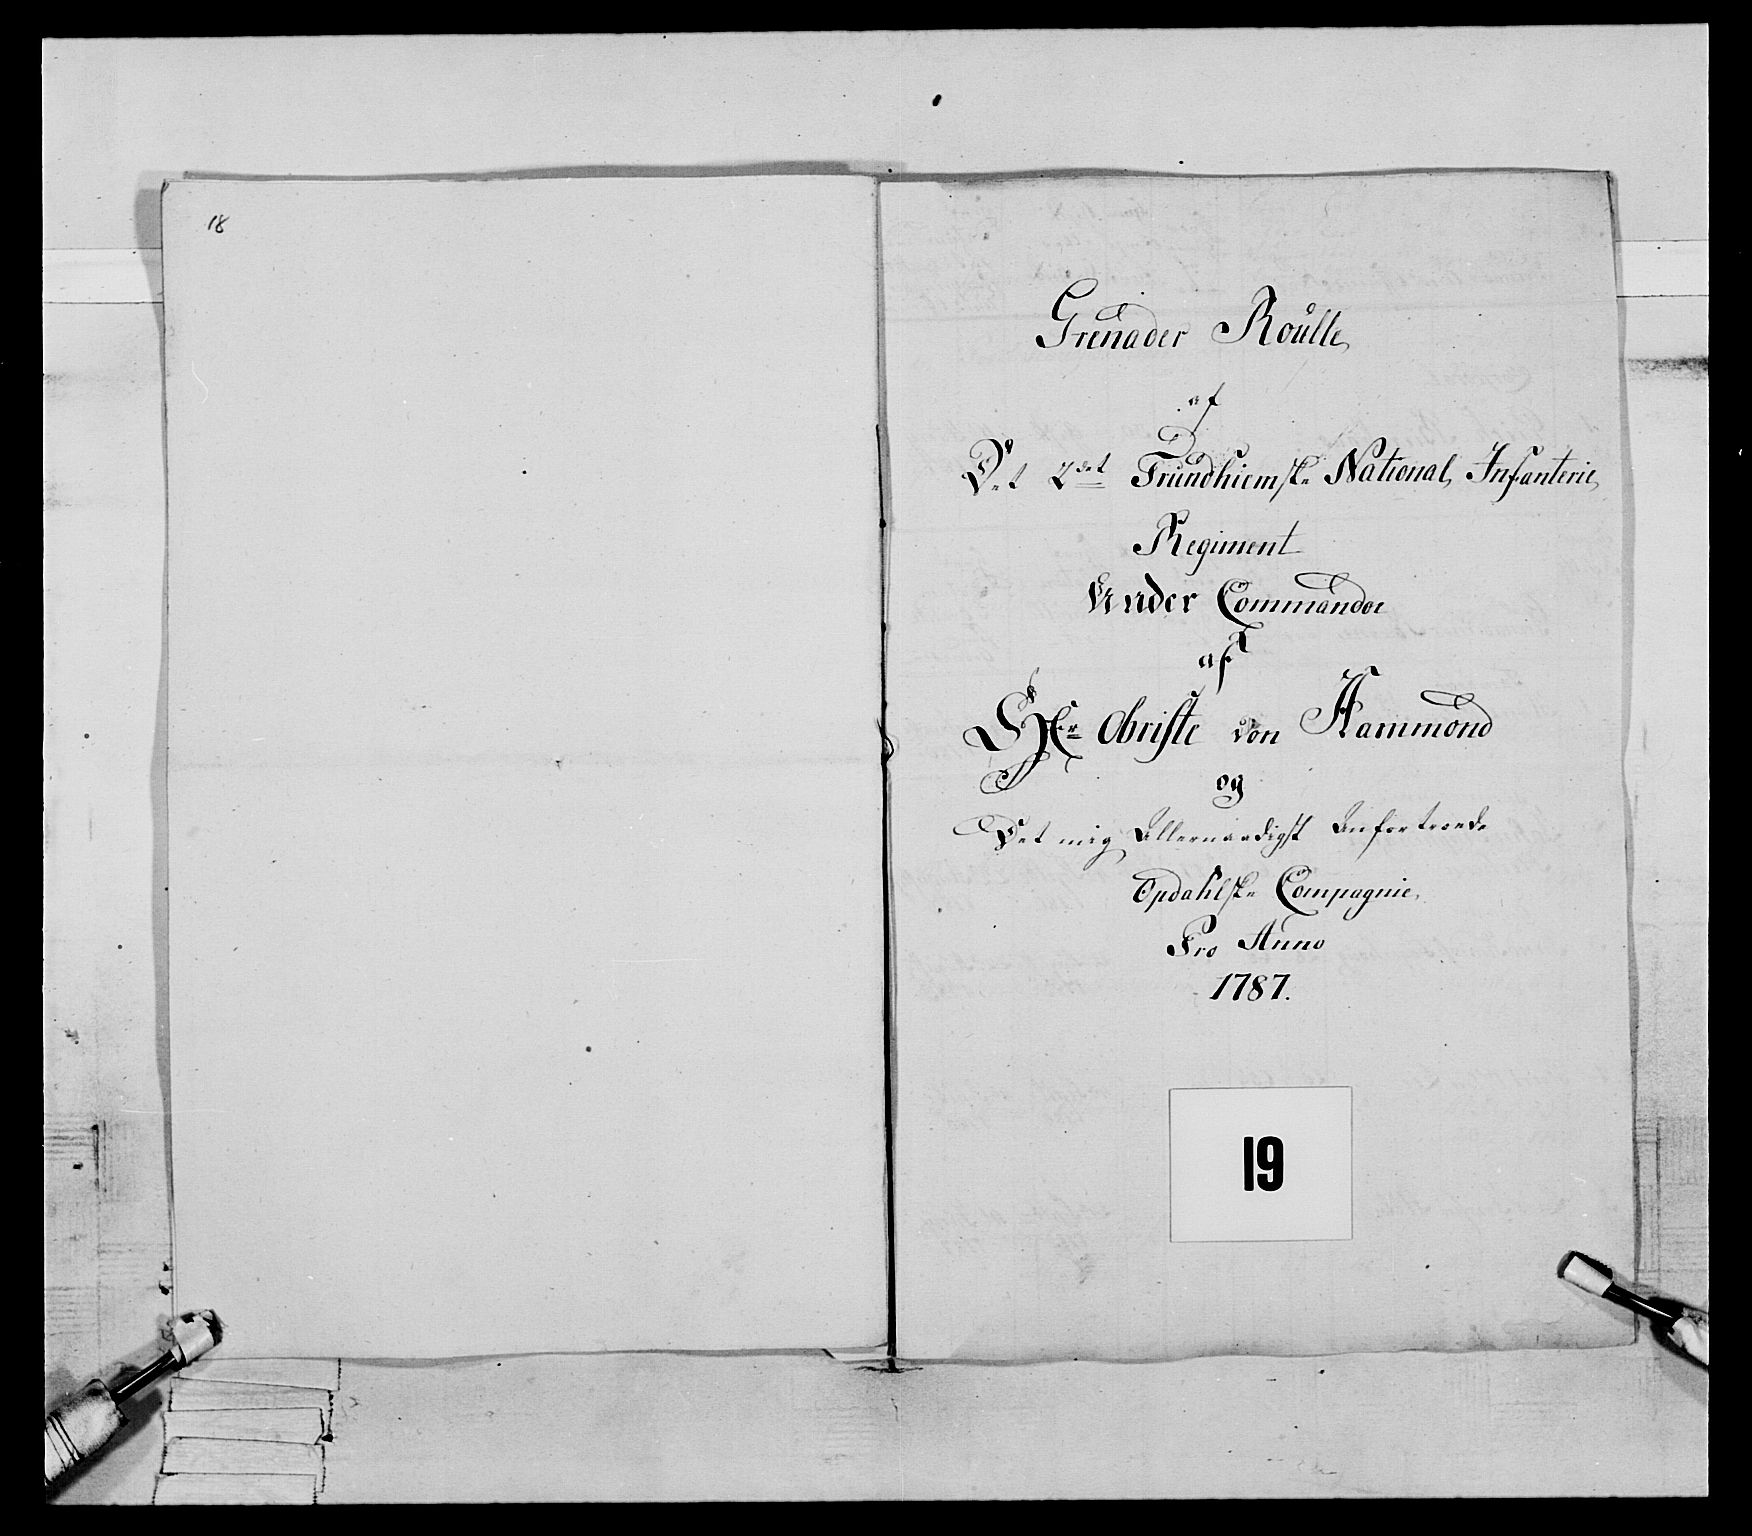 18
Grenader Roulle
af
Det 2det Trundhiemske National Infanterie
Regiment
Under Commandoe
af
Hr Obriste von Hammond
og
Det mig Allernaadigst Anfortroede
Opdahlske Compagnie
Pro Anno
1787.
19